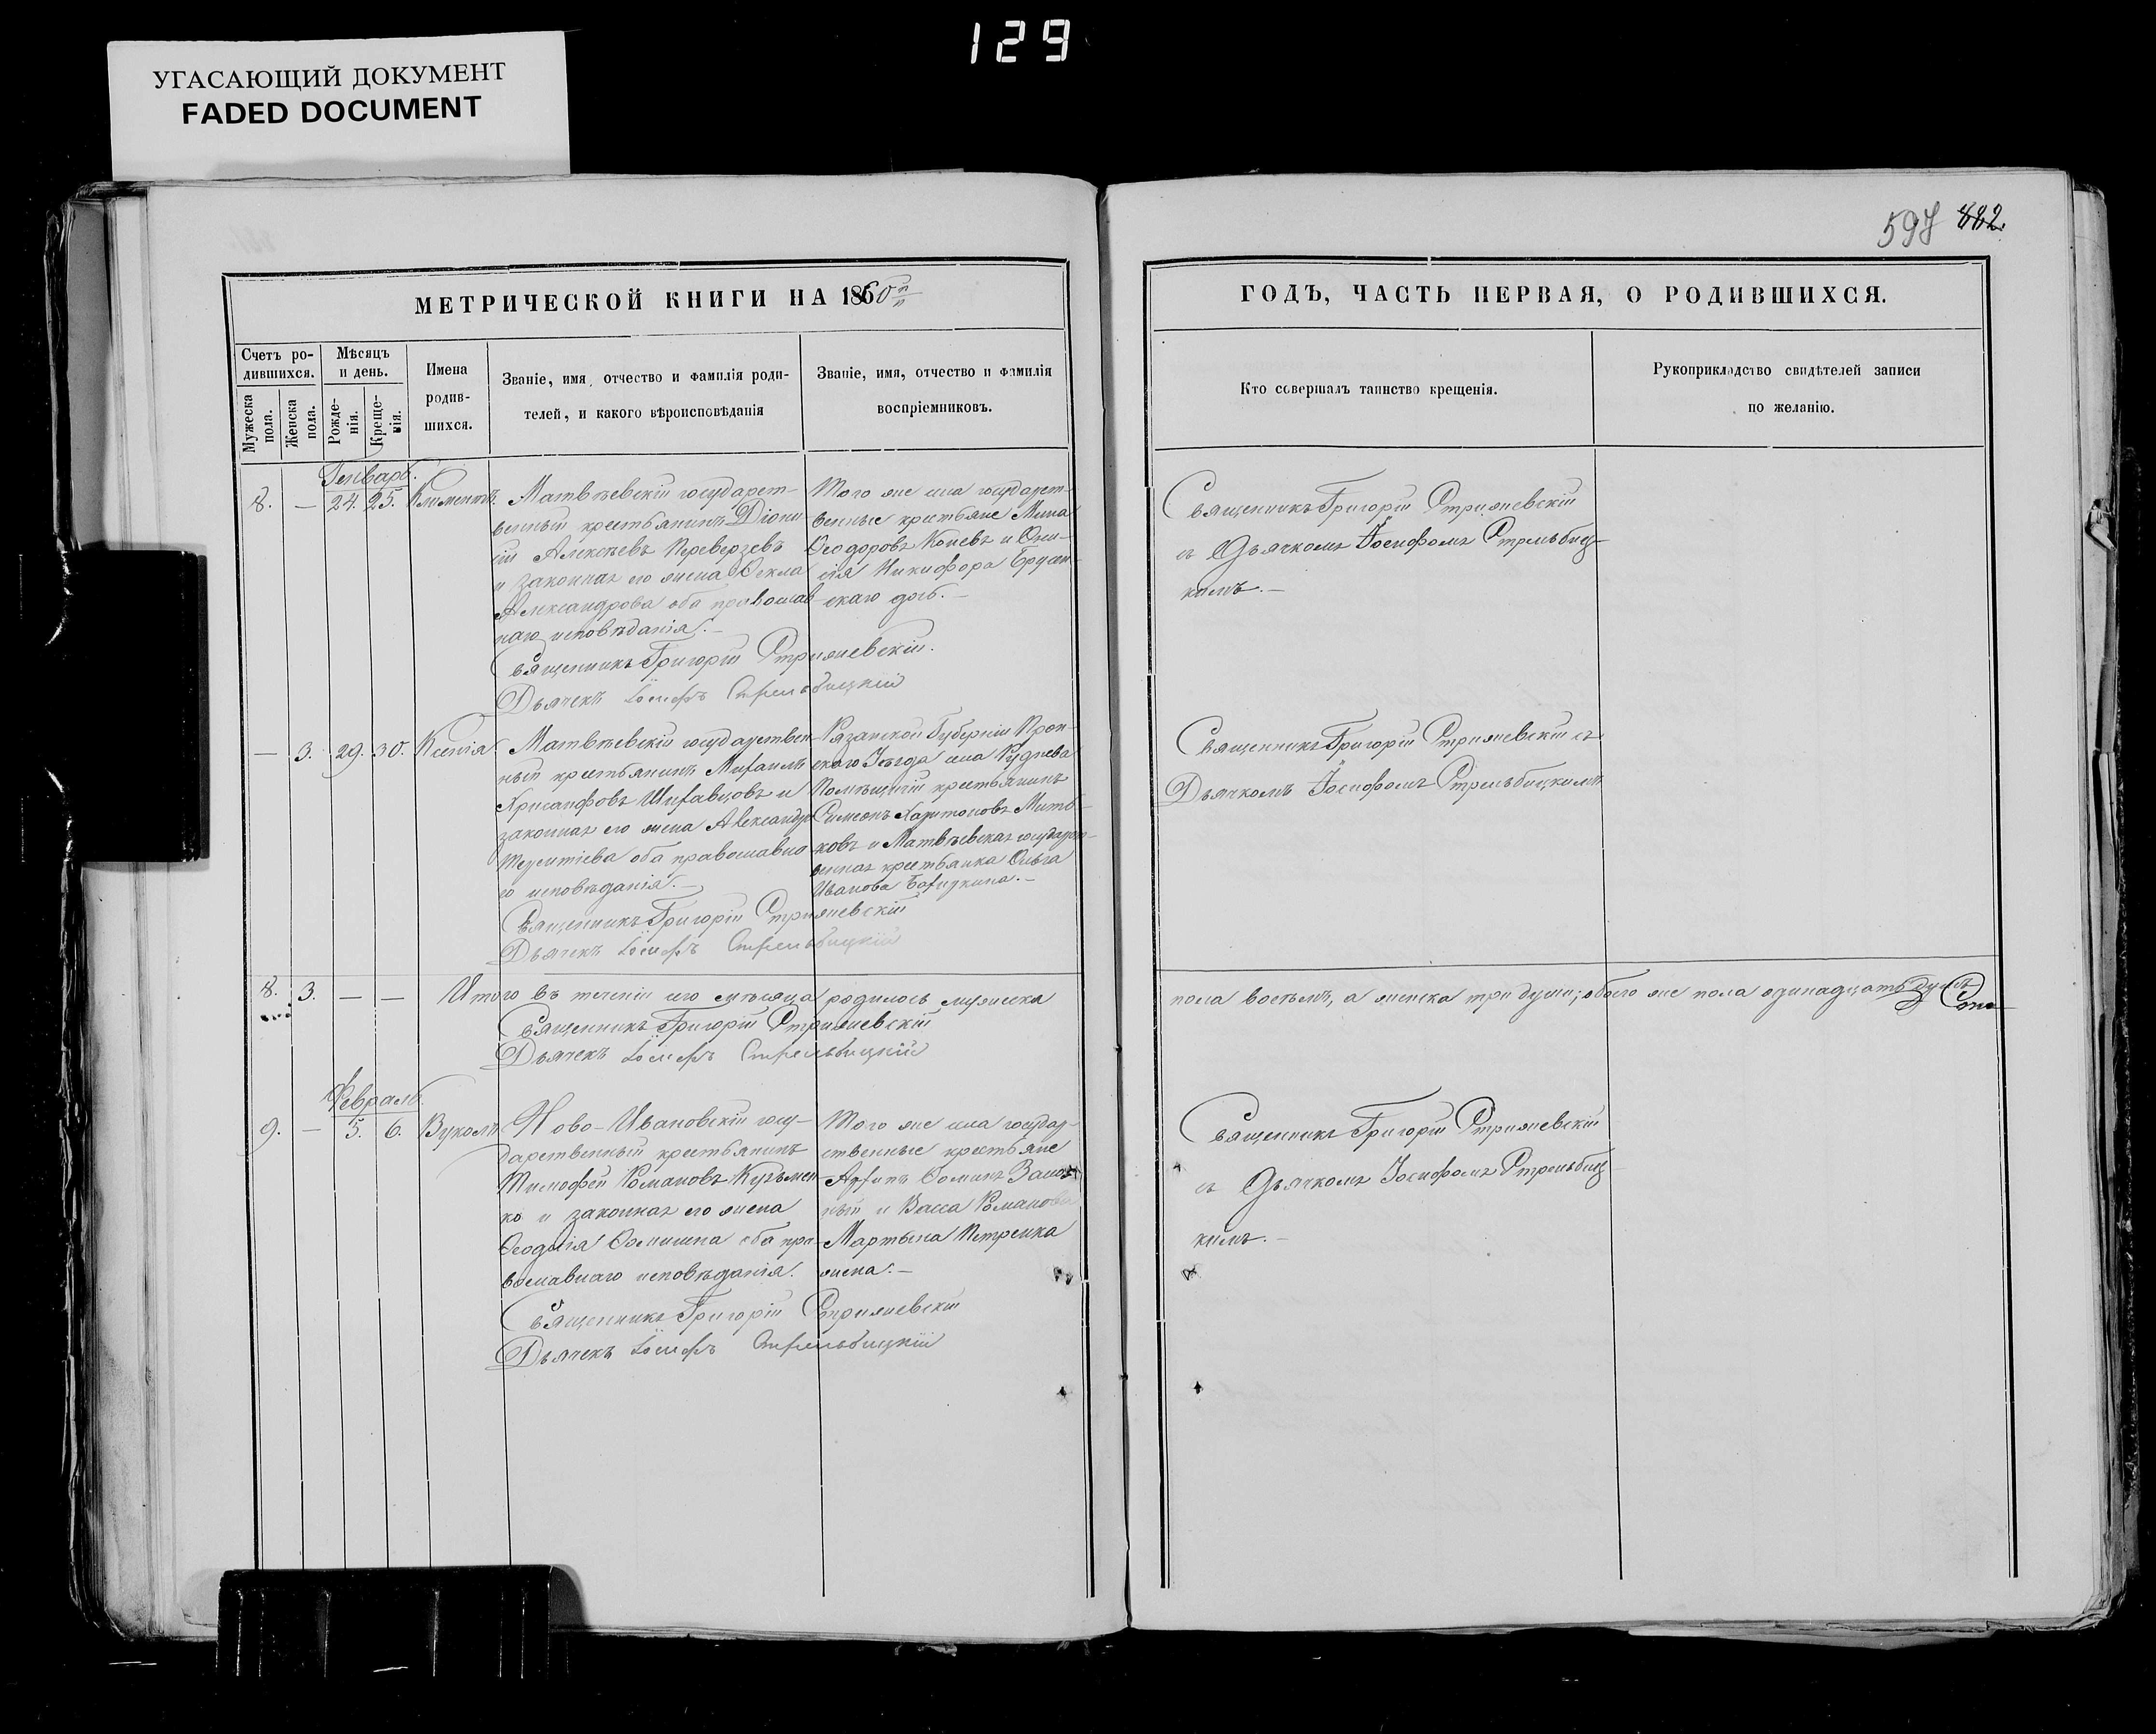 129
УГАСАЮЩИЙ ДОКУМЕНТ
FADED DOCUMENT
597 882.
МЕТРИЧЕСКОЙ КНИГИ НА 1860
Счетъ ро-
дившихся.
Мужеска
пола.
Женска
пола.
Мѣсяцъ
и день.
Рожде-
нія.
Креще-
нія.
Имена
родив-
шихся.
Званіе, имя, отчество и фамилія роди-
телей, и какого вѣроисповѣданія
Званіе, имя, отчество и фамилія
воспріемниковъ.
ГОДЪ, ЧАСТЬ ПЕРВАЯ, О РОДИВШИХСЯ.
Кто совершалъ таинство крещенія.
Рукоприкладство свидѣтелей записи
по желанію.
Генварь.
8. — 24. 25. Климентъ.
Матвѣевскій государст-
венный крестьянинъ Діони-
сій Алексѣевъ Переверзевъ
и законная его жена Ѳекла
Александрова оба православ
наго исповѣданія.—
Священникъ Григорій Стрижевскій.
Дьячекъ Іосифъ Стрельбицкій
Того же села государст-
венные крестьяне Мина
Ѳеодоровъ Коневъ и
Никифора
скаго дочь.—
Священникъ Григорій Стрижевскій
съ Дьячкомъ Іосифомъ Стрельбиц-
кимъ.—
— 3. 29. 30. Ксенія.
Матвѣевскій государствен-
ный крестьянинъ Михаилъ
Хрисанфовъ Шихавцовъ и
законная его жена Александра
Терентіева оба православна
го исповѣданія.—
Священникъ Григорій Стрижевскій
Дьячекъ Іосифъ Стрельбицкій
Рязанской Губерніи Прон-
скаго Уѣзда села Руднева
Помѣщичій крестьянинъ
Симеонъ Харитоновъ
ковъ и Матвѣевская государст-
венная крестьянка Ольга
Иванова
Священникъ Григорій Стрижевскій съ
Дьячкомъ Іосифомъ Стрельбицкимъ
8. 3. — — Итого въ теченіи сего мѣсяца родилось мужеска
пола восемь, а женска три души; обоего же пола одинадцать душъ
Священникъ Григорій Стрижевскій
Дьячекъ Іосифъ Стрельбицкій
Февраль.
9. — 5. 6. Вуколъ
Ново-Ивановскій госу-
дарственный крестьянинъ
Тимофей Романовъ Кузьмен
ко и законная его жена
Ѳеодосія Ѳомишна оба пра-
вославнаго исповѣданія.
Священникъ Григорій Стрижевскій
Дьячекъ Іосифъ Стрельбицкій
Того же села государ-
ственные крестьяне
Ѳоминъ
ный и Васса Романова
Мартына Петренка
жена.—
Священникъ Григорій Стрижевскій
съ Дьячкомъ Іосифомъ Стрельбиц
кимъ.—